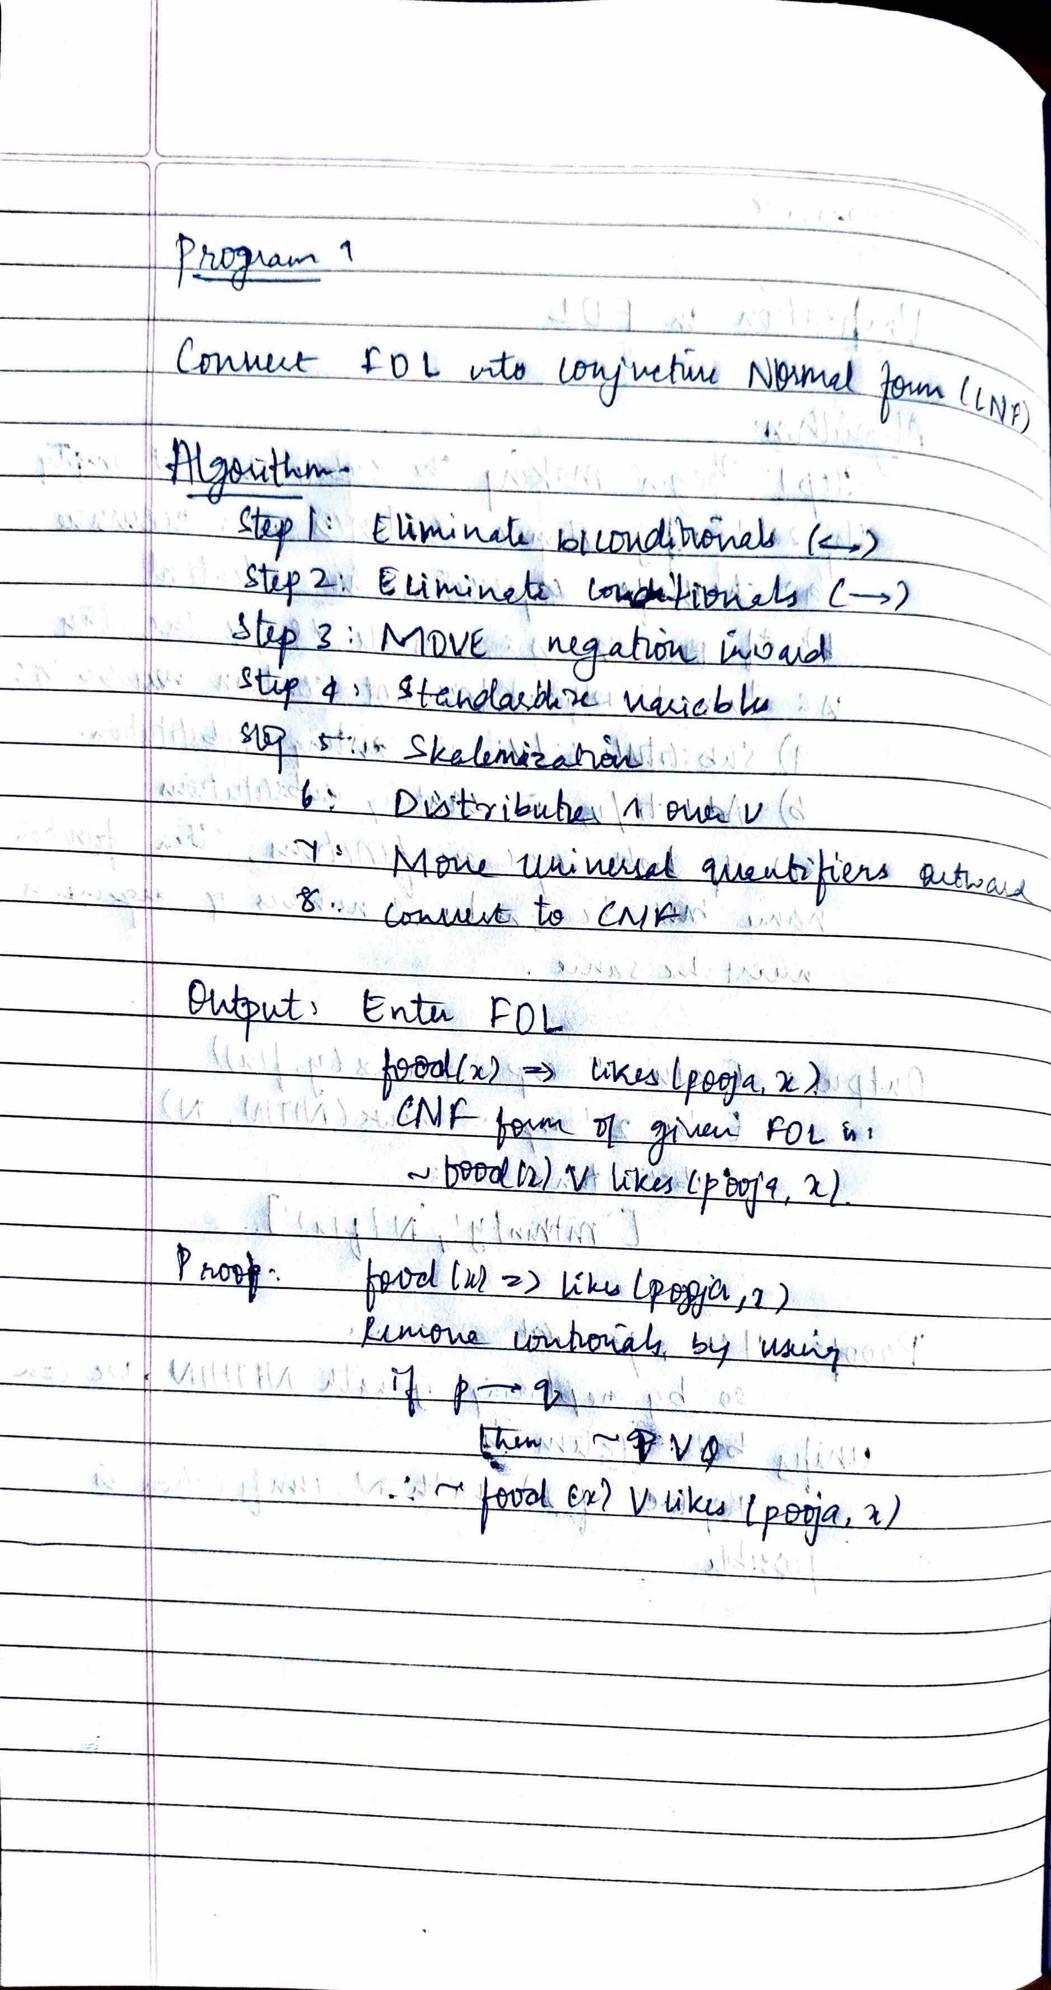 Program 1
Convert FOL into Conjuctive Normal form (CNF)
Algorithm
Step 1: Eliminate biconditionals (<->)
Step 2: Eliminate conditionals (→)
Step 3: MOVE negation inward
Step 4: Standardize variables
Step 5: Skolemization
6: Distribute ∧ over ∨
7: Move universal quantifiers outward
8: Convert to CNF
Output: Enter FOL
food(x) => likes (pooja, x)
CNF form of given FOL is:
~ food(x) V likes (pooja, x).
Proof: food (x) => likes (pooja, x)
Remove by using
if p → q
then ~P V Q
∴ ~ food (x) V likes (pooja, x)